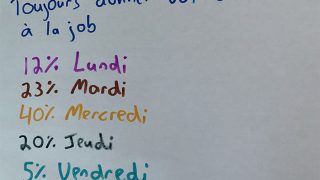 Toujours donner
à la job
12% Lundi
23% Mardi
40% Mercredi
20% Jeudi
5% Vendredi